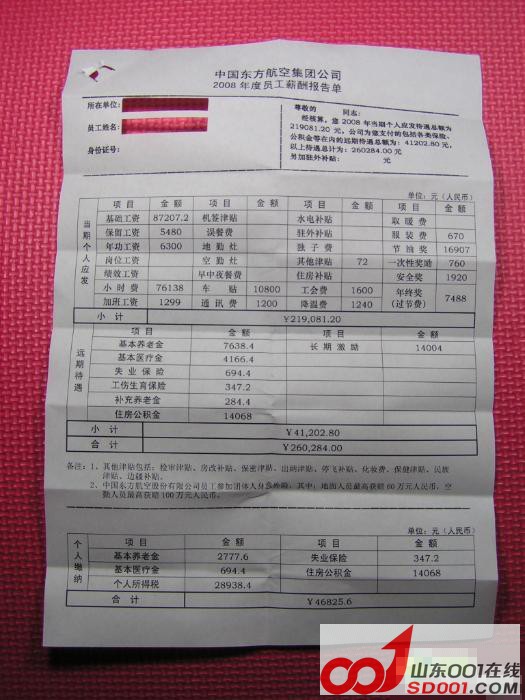 中国东方航空集团公司
2008 年度员工薪酬报告单
所在单位:
员工姓名:
身份证号:
尊敬的 同志:
经核算,您 2008 年当期个人应发待遇总额为
219081.20 元,公司为您支付的包括各类保险、
公积金等在内的远期待遇总额为: 41202.80 元,
以上待遇总计为: 260284.00 元
另加驻外补贴: 元
单位: 元 (人民币)
当期个人应发
项 目 金 额 项 目 金 额 项 目 金 额 项 目 金 额
基础工资 87207.2 机签津贴 水电补贴 取 暖 费
保留工资 5480 误餐费 驻外补贴 服 装 费 670
年功工资 6300 地 勤 灶 独 子 费 节 油 奖 16907
岗位工资 空 勤 灶 其他津贴 72 一次性奖励 760
绩效工资 早中夜餐费 住房补贴 安全奖 1920
小 时 费 76138 车 贴 10800 工会费 1600 年终奖(过节费) 7488
加班工资 1299 通 讯 费 1200 降温费 1240
小 计 ¥219,081.20
远期待遇
项 目 金 额 项 目 金 额
基本养老金 7638.4 长 期 激 励 14004
基本医疗金 4166.4
失 业 保 险 694.4
工伤生育保险 347.2
补充养老金 284.4
住房公积金 14068
小 计 ¥41,202.80
合 计 ¥260,284.00
备注: 1、其他津贴包括: 检审津贴、房改补贴、保密津贴、出纳津贴、停飞补贴、化妆费、保健津贴、民族
津贴、边疆补贴。
2、中国东方航空股份有限公司员工参加团体人身险,其中: 地面人员最高获赔 60 万元人民币,空
勤人员最高获赔 100 万元人民币。
单位: 元 (人民币)
个人缴纳
项 目 金 额 项 目 金 额
基本养老金 2777.6 失业保险 347.2
基本医疗金 694.4 住房公积金 14068
个人所得税 28938.4
合 计 ¥46825.6
001 山东001在线
SD001.com